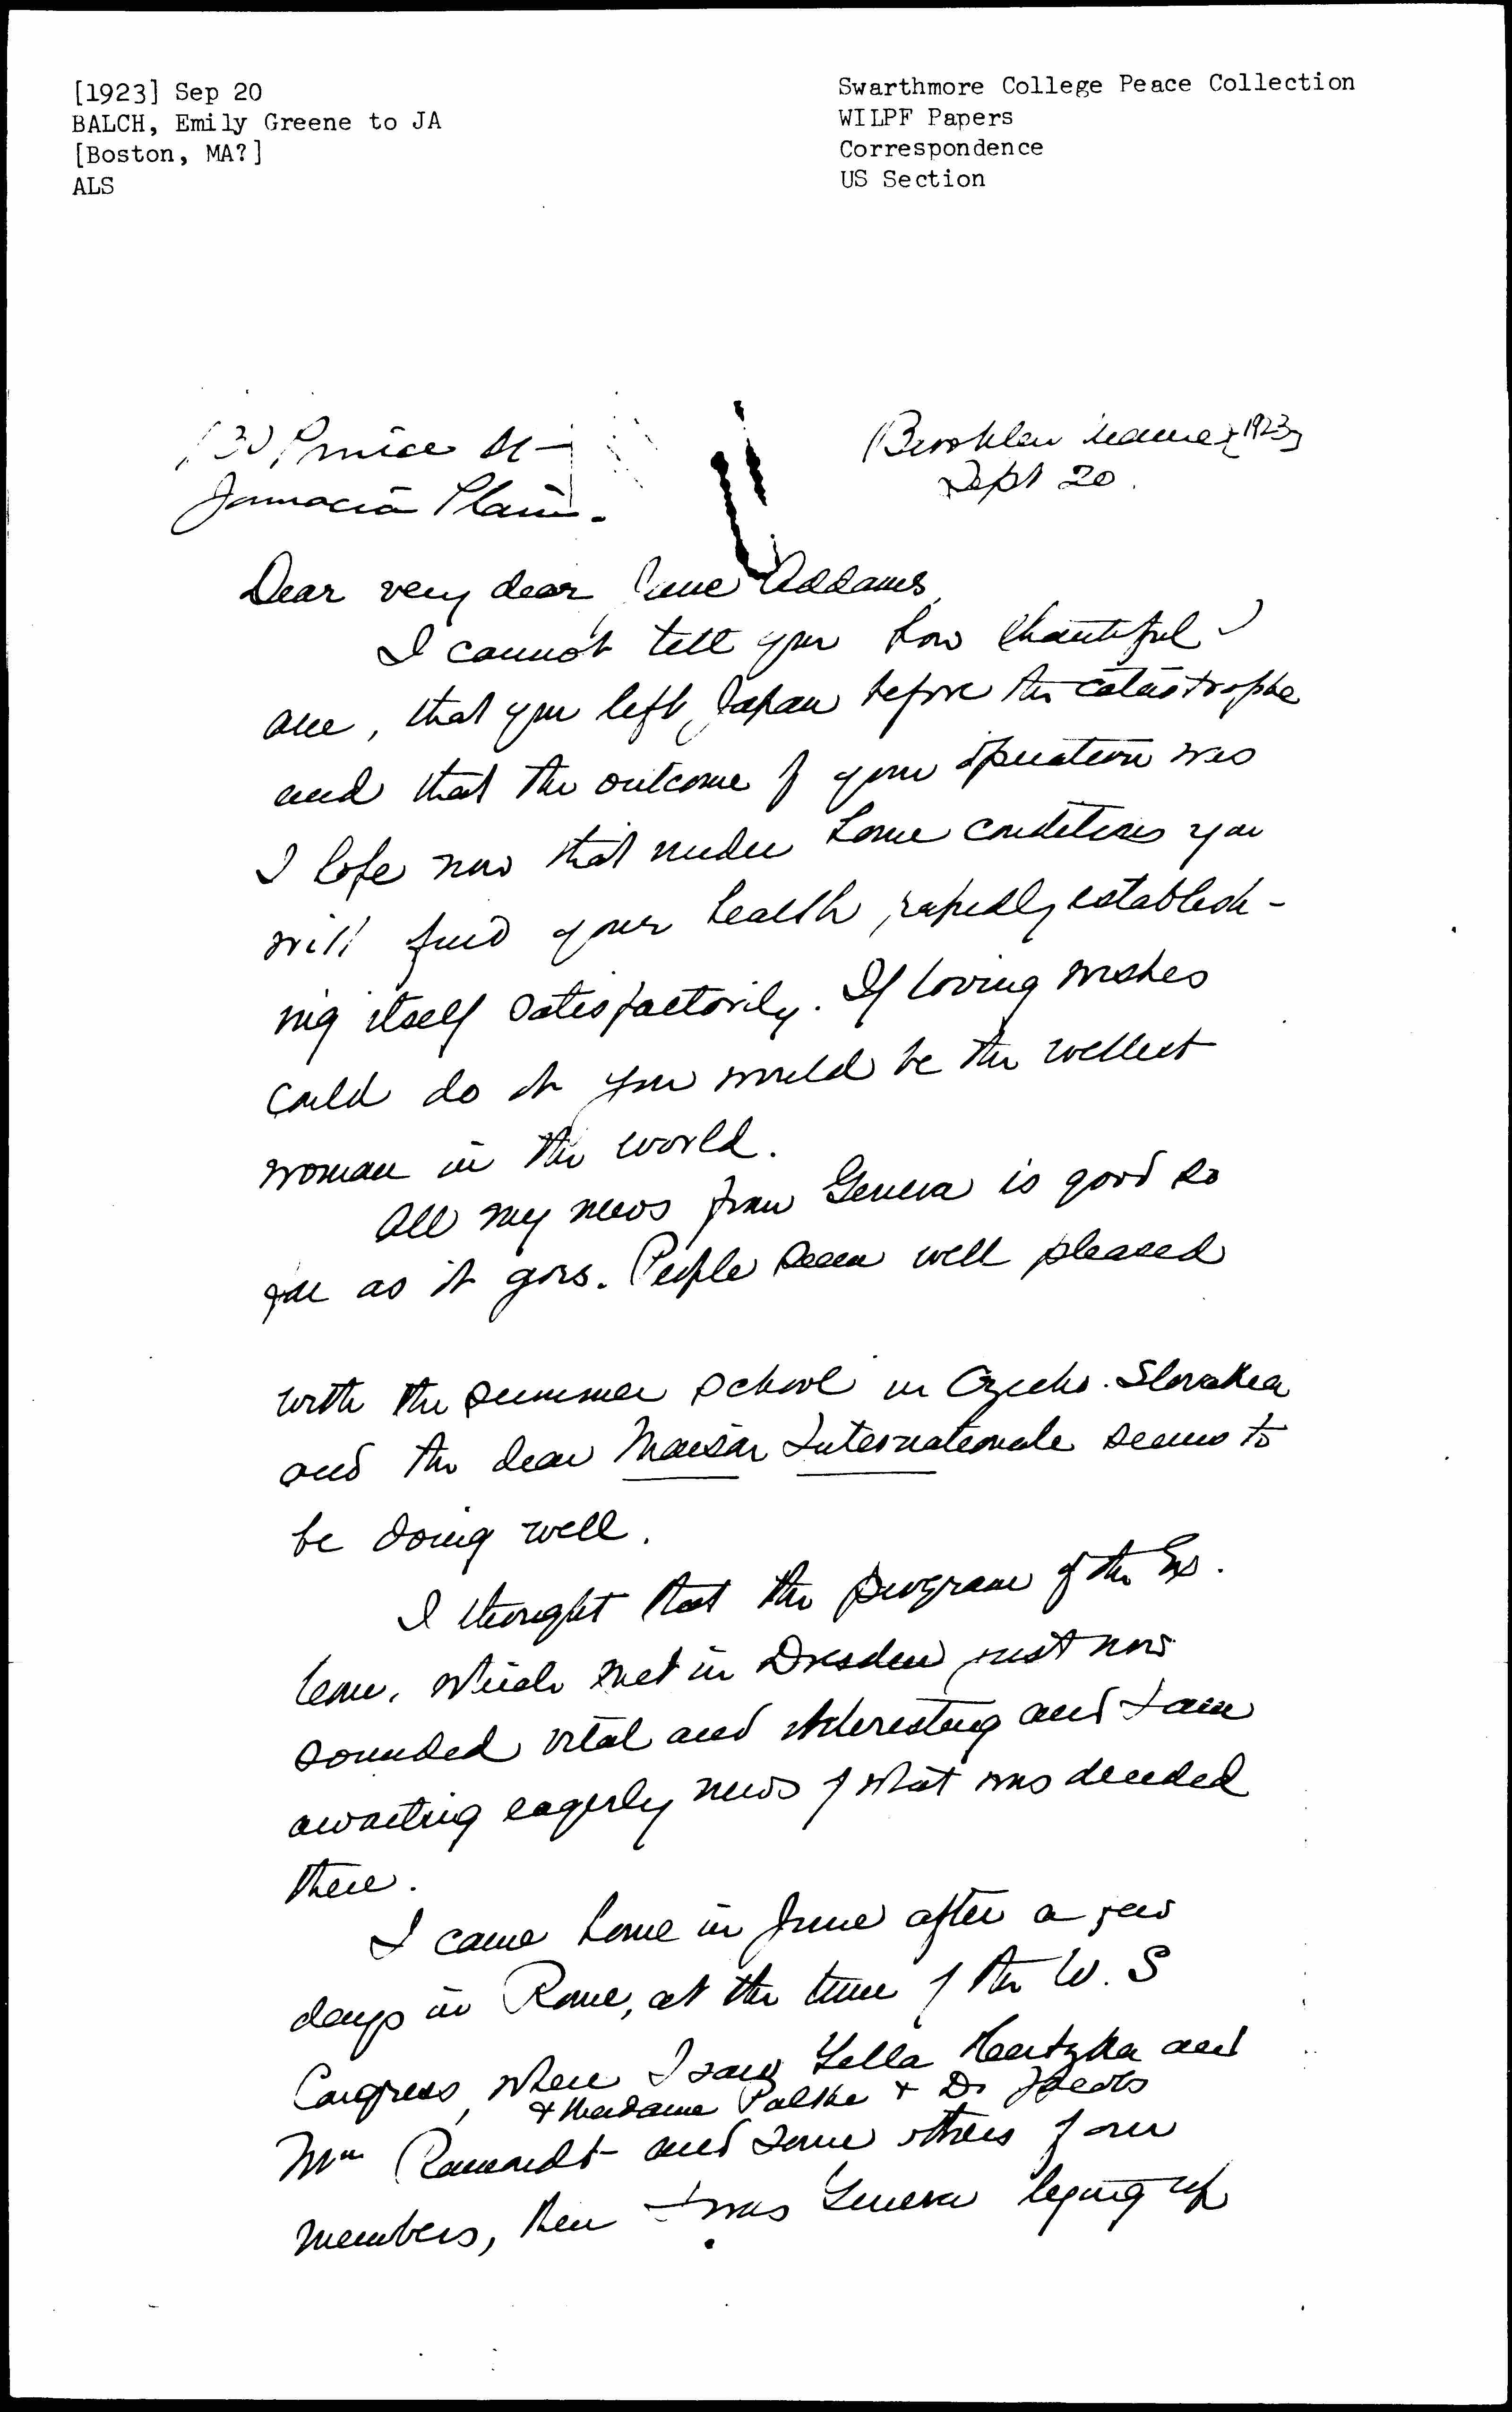 [1923] Sep 20
BALCH, Emily Greene to JA
[Boston, MA?]
ALS
Swarthmore College Peace Collection
WILPF Papers
Correspondence
US Section
130 Prince St
Jamaica Plain.
Brooklin Maine [1923]
Sept 20.
Dear very dear Jane Addams,
I cannot tell you how thankful I
am, that you left Japan before the catastrophe
and that the outcome of your operation was
I hope now that under home conditions you
will find your health rapidly establish-
ing itself satisfactorily. If loving wishes
could do it you would be the wellest
woman in the world.
All my news from Geneva is good so
far as it goes. People seem well pleased
with the summer school in Czecho-Slovakia
and the dear Maison Internationale seems to
be doing well.
I thought that the program of the Ex.
Com. which met in Dresden just now
sounded vital and interesting and I am
awaiting eagerly news of what was decided
there.
I came home in June after a few
days in Rome, at the time of the W. S
Congress, where I saw Yella Hertzka and
& Madame Palthe & Dr Jacobs
Mme Ramondt and some others of our
members, then I was Geneva laying up